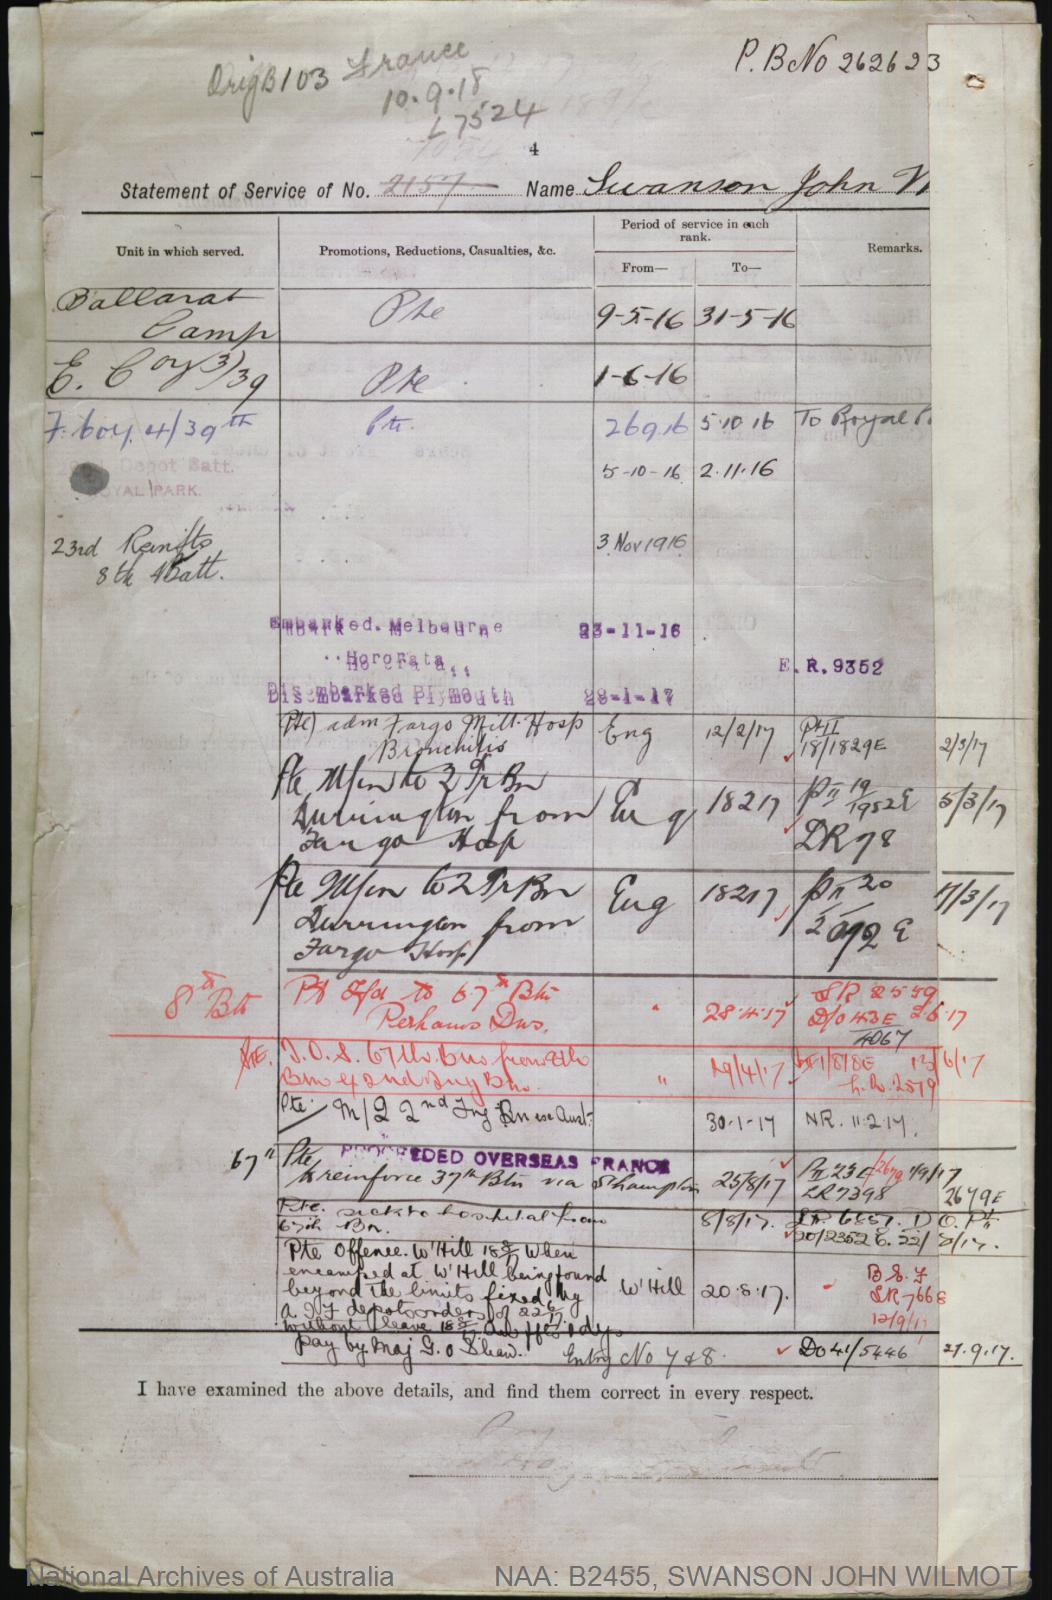 OrigB103 France
10.9.18
L7524
P.B No 262623
4
Statement of Service of No. 2157 Name Swanson John W
Unit in which served.
Promotions, Reductions, Casualties, &c.
Period of service in each rank.
From—
To—
Remarks.
Ballarat Camp
Pte
9-5-16
31-5-16
E. Coy 3/39
Pte
1-6-16
F. Coy. 4/39th
Pte.
26 9 16
5.10 16
To Royal P.
Depot Batt.
ROYAL PARK.
5-10-16
2.11.16
23rd Reinfts
8th Batt.
3 Nov 1916
Embarked. Melbourne
23-11-16
Hororata
E.R.9352
Disembarked Plymouth
28-1-17
Pte) adm Fargo Milt. Hosp
Bronchitis
Eng
12/2/17
Pt II
18/1829E
2/3/17
Pte M/in to 2 Tr Bn
Durrington from
Fargo Hosp
Eng
18217
P II 19
1952E
DR 78
5/3/17
Pte M/in to 2 Tr Bn
Durrington from
Fargo Hosp
Eng
18217
P II 20
2092 E
7/3/17
8th Btn
Pt Tfd to 67th Btn
Perhams Dns.
"
28.4.17
SR 2559
D/O 43E 2.6.17
4067
Pte.
T.O.S. 67th Bn from 8th
Bn & 2nd Trg Bn.
"
29/4/17
1/8/8E 12/6/17
L.R. 2579
Pte. M/I 2nd Trg Bn ex Aust.
30.1.17
NR. 11.2.17.
67th
Pte PROCEEDED OVERSEAS FRANCE
to reinforce 37th Btn via S'hampton
25/8/17
P II 23E/2679 1/9/17
LR 7398
2679E
Pte. sick to hospital from
67th Bn.
8/8/17.
LR 6857. D.O. Pt II
20/2352 E. 22/8/17.
Pte Offence. W'Hill 18/8/17 When
encamped at W'Hill being found
beyond the limits fixed by
A I F depots order of 22/6/17
without leave 18/8/17
pay by Maj G. O Shaw.
W'Hill
20.8.17.
B.S.F
SR 7668
12/9/17
Entry No 7 & 8.
DO 41/5446
27.9.17.
I have examined the above details, and find them correct in every respect.
National Archives of Australia
NAA: B2455, SWANSON JOHN WILMOT